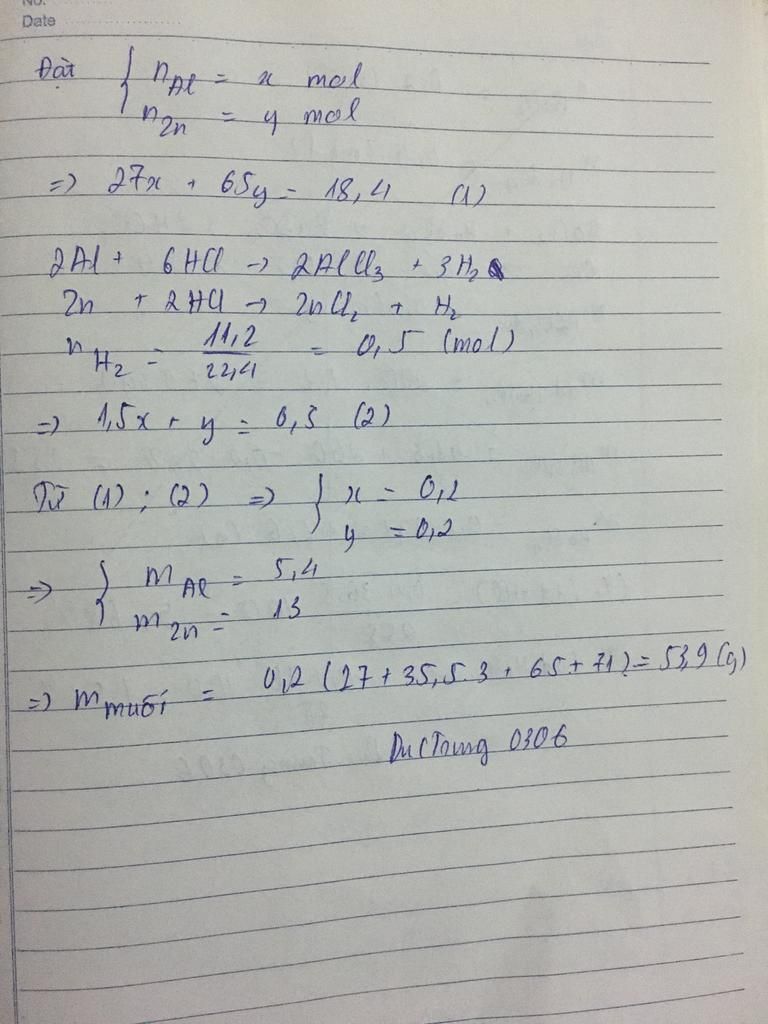 No.
Date
Đặt { n Al = x mol
n Zn = y mol
=> 27x + 65y = 18,4 (1)
2Al + 6HCl -> 2AlCl3 + 3H2
Zn + 2HCl -> ZnCl2 + H2
n H2 = 11,2 / 22,4 = 0,5 (mol)
=> 1,5x + y = 0,3 (2)
Từ (1) ; (2) => { x = 0,2
y = 0,2
=> { m Al = 5,4
m Zn = 13
=> m muối = 0,2 (27 + 35,5.3 + 65 + 71) = 53,9 (g)
DucTrung 0306